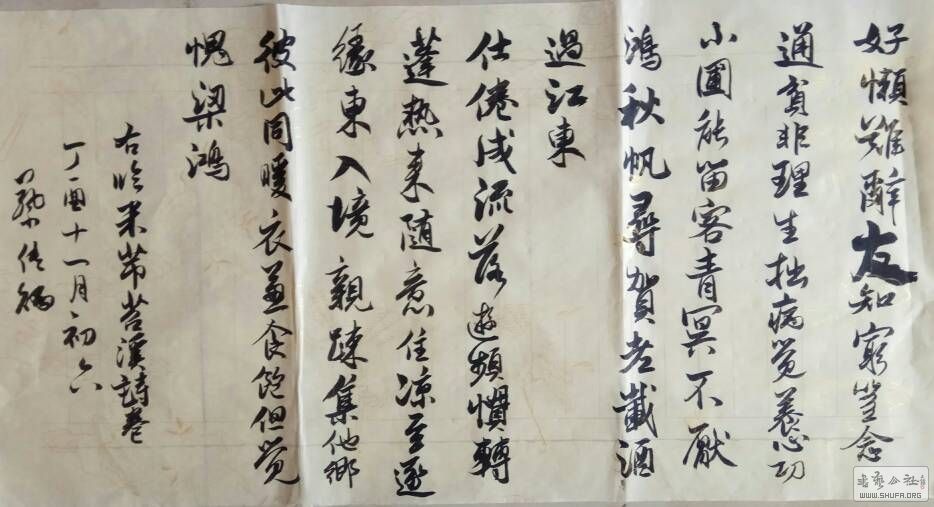 好懶難辭友知窮豈念
通貧非理生拙病觉養心功
小圃能留客青冥不厭
鴻秋帆尋賀老載酒
過江東
仕倦成流落遊頻慣轉
蓬熱来随意住凉至逐
緣東入境親疎集他鄉
彼此同暖衣兼食飽但觉
愧梁鴻
右临米芾苕溪詩卷
丁酉十一月初六
传福
書藝公社
WWW.SHUFA.ORG